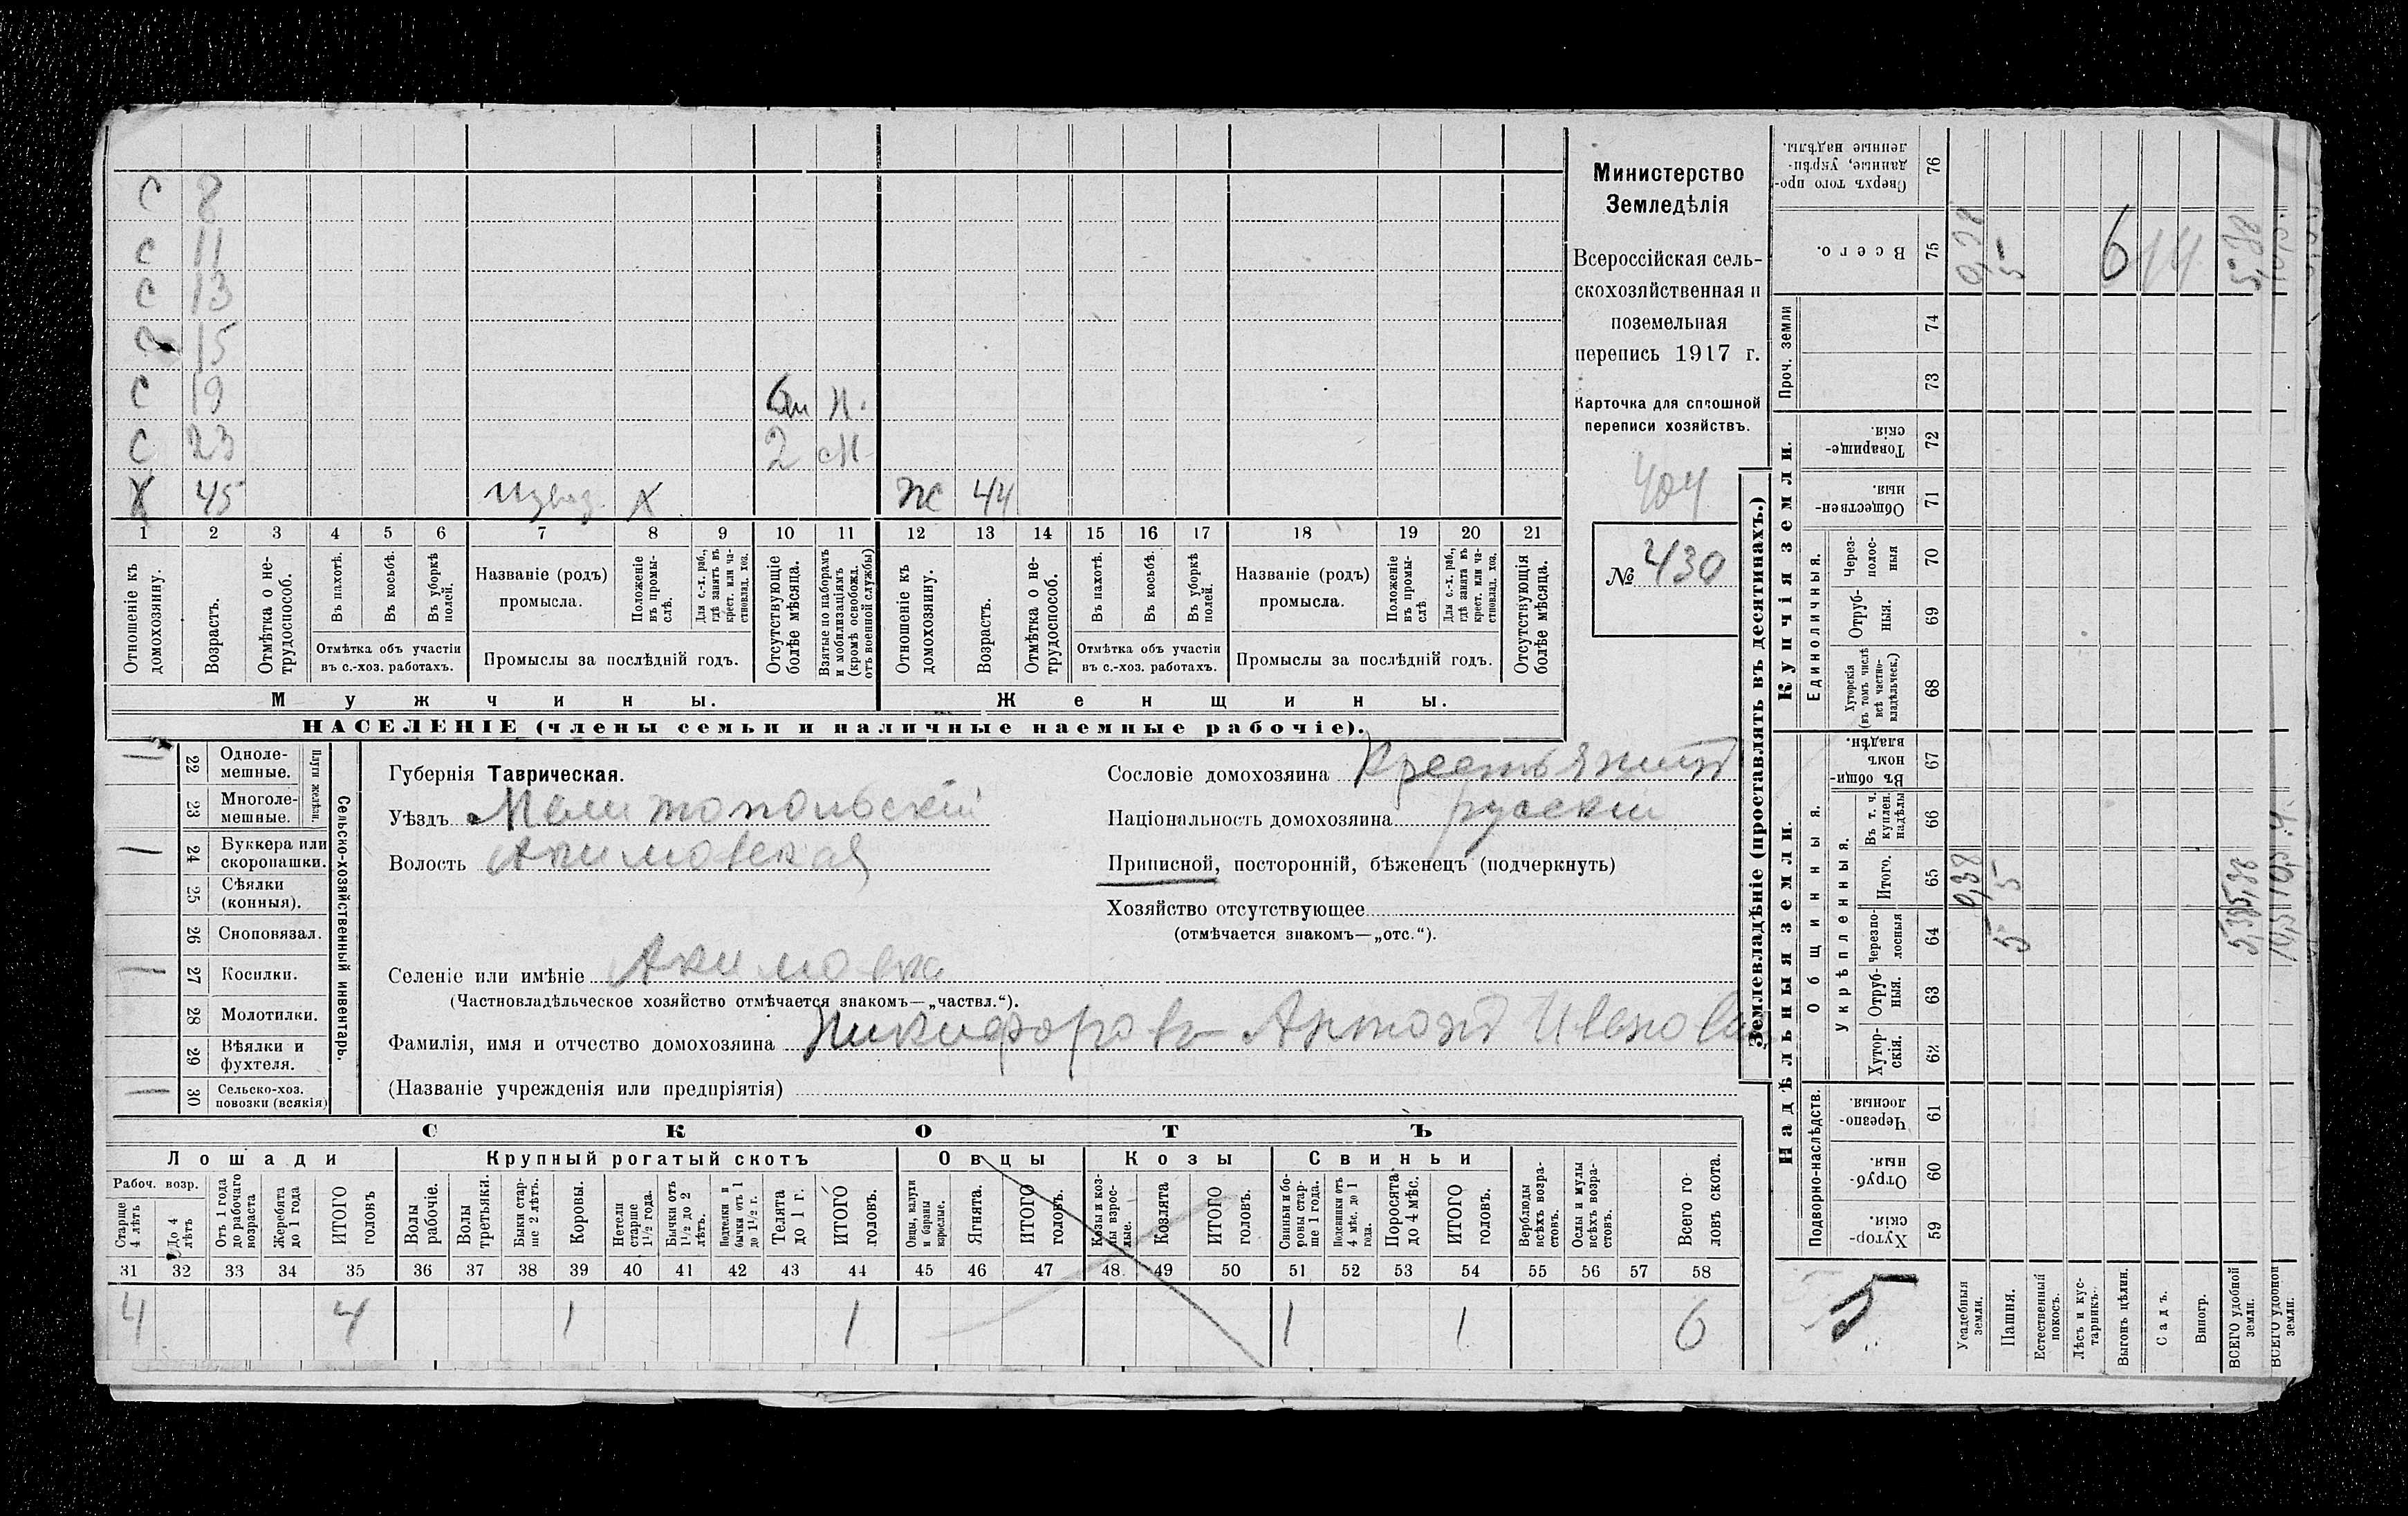 С 8
С 11
С 13
С 15
С 19 6 м Н.
С 23 2 м
Х 45 извоз. Х Ж 44
1 2 3 4 5 6 7 8 9 10 11 12 13 14 15 16 17 18 19 20 21
Отношеніе къ домохозяину.
Возрастъ.
Отмѣтка о нетрудоспособ.
Въ пахотѣ.
Въ косьбѣ.
Въ уборкѣ полей.
Отмѣтка объ участіи
въ с.-хоз. работахъ.
Названіе (родъ)
промысла.
Положеніе въ промыслѣ.
Для с.-х. раб., гдѣ занятъ въ крест. или частновлад. хоз.
Промыслы за послѣдній годъ.
Отсутствующіе болѣе мѣсяца.
Взятые по наборамъ и мобилизаціямъ (кромѣ освобожд. отъ военной службы)
Отношеніе къ домохозяину.
Возрастъ.
Отмѣтка о нетрудоспособ.
Въ пахотѣ.
Въ косьбѣ.
Въ уборкѣ полей.
Отмѣтка объ участіи
въ с.-хоз. работахъ.
Названіе (родъ)
промысла.
Положеніе въ промыслѣ
Для с.-х. раб., гдѣ занята въ крест. или частновлад. хоз.
Промыслы за послѣдній годъ.
Отсутствующія болѣе мѣсяца.
Мужчины. Женщины.
НАСЕЛЕНІЕ (члены семьи и наличные наемные рабочіе).
Министерство
Земледѣлія
Всероссійская сель-
скохозяйственная и
поземельная
перепись 1917 г.
Карточка для сплошной
переписи хозяйствъ.
404
№ 430
22 Одноле-
мешные.
23 Многоле-
мешные.
Плуги желѣзн.
24 Буккера или
скоропашки.
25 Сѣялки
(конныя).
26 Сноповязал.
27 Косилки.
28 Молотилки.
29 Вѣялки и
фухтеля.
30 Сельско-хоз.
повозки (всякія)
Сельско-хозяйственный инвентарь.
Губернія Таврическая.
Уѣздъ Мелитопольскій
Волость Акимовская
Сословіе домохозяина Крестьянинъ
Національность домохозяина русскій
Приписной, посторонній, бѣженецъ (подчеркнуть)
Хозяйство отсутствующее
(отмѣчается знакомъ—„отс.“).
Селеніе или имѣніе Акимовка
(Частновладѣльческое хозяйство отмѣчается знакомъ—„частвл.“).
Фамилія, имя и отчество домохозяина Никифоровъ Антонъ
(Названіе учрежденія или предпріятія)
СКОТЪ
Лошади Крупный рогатый скотъ Овцы Козы Свиньи
Рабоч. возр.
Старше 4 лѣтъ
До 4 лѣтъ
Отъ 1 года до рабочаго возраста
Жеребята до 1 года
ИТОГО головъ
Волы рабочіе.
Волы третьяки.
Быки старше 2 лѣтъ.
Коровы.
Нетели старше 1½ года.
Бычки отъ 1½ до 2 лѣтъ.
Подтелки и бычки отъ 1 до 1½ г.
Телята до 1 г.
ИТОГО головъ.
Овцы, валухи и бараны взрослые.
Ягнята.
ИТОГО головъ.
Козы и козлы взрослые.
Козлята
ИТОГО головъ.
Свиньи и боровы старше 1 года.
Подсвинки отъ 4 мѣс. до 1 года.
Поросята до 4 мѣс.
ИТОГО головъ.
Верблюды всѣхъ возрастовъ.
Ослы и мулы всѣхъ возрастовъ.
Всего головъ скота.
31 32 33 34 35 36 37 38 39 40 41 42 43 44 45 46 47 48 49 50 51 52 53 54 55 56 57 58
4 4 1 1 1 1 6
Землевладѣніе (проставлять въ десятинахъ.)
Купчія земли.
Надѣльныя земли.
76 Сверхъ того проданные, укрѣпленные надѣлы.
75 Всего.
Проч. земли
74
73
72 Товарищескія.
71 Общественныя.
Единоличныя.
70 Черезполосныя
69 Отрубныя.
68 Хуторскія (въ томъ числѣ всѣ частновладѣльческ.)
Общинныя.
67 Въ общинномъ владѣн.
Укрѣпленныя.
66 Въ т. ч. куплен. надѣлы
65 Итого.
64 черезполосныя
63 Отрубныя.
62 Хуторскія.
Подворно-наслѣдств.
61 Черезполосныя.
60 Отрубныя.
59 Хуторскія.
5
Усадебныя земли. 0,38 0,38
Пашня. 5 5 5
Естественный покосъ.
Лѣсъ и кустарникъ.
Выгонъ цѣлин. 6
Садъ. 14
Виногр.
ВСЕГО удобной земли. 5,38 5,38 5,38
ВСЕГО удобной земли.